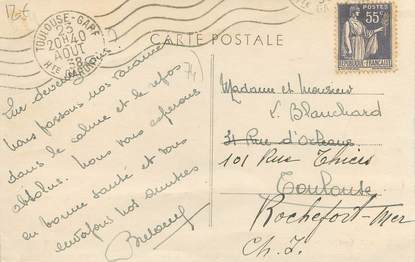 1205
TOULOUSE-GARE
23
20H40
AOUT
38
Hte GARONNE
CARTE POSTALE
POSTES
55c
REPUBLIQUE FRANÇAISE
74
nous passons nos vacances
dans le calme et le repos
absolus. Nous vous espérons
en bonne santé et vous
envoyons nos amitiés
Madame et Monsieur
L. Blanchard
31 Rue d'Orléans
101 Rue Thiers
Toulouse
Rochefort-Mer
Ch. I.